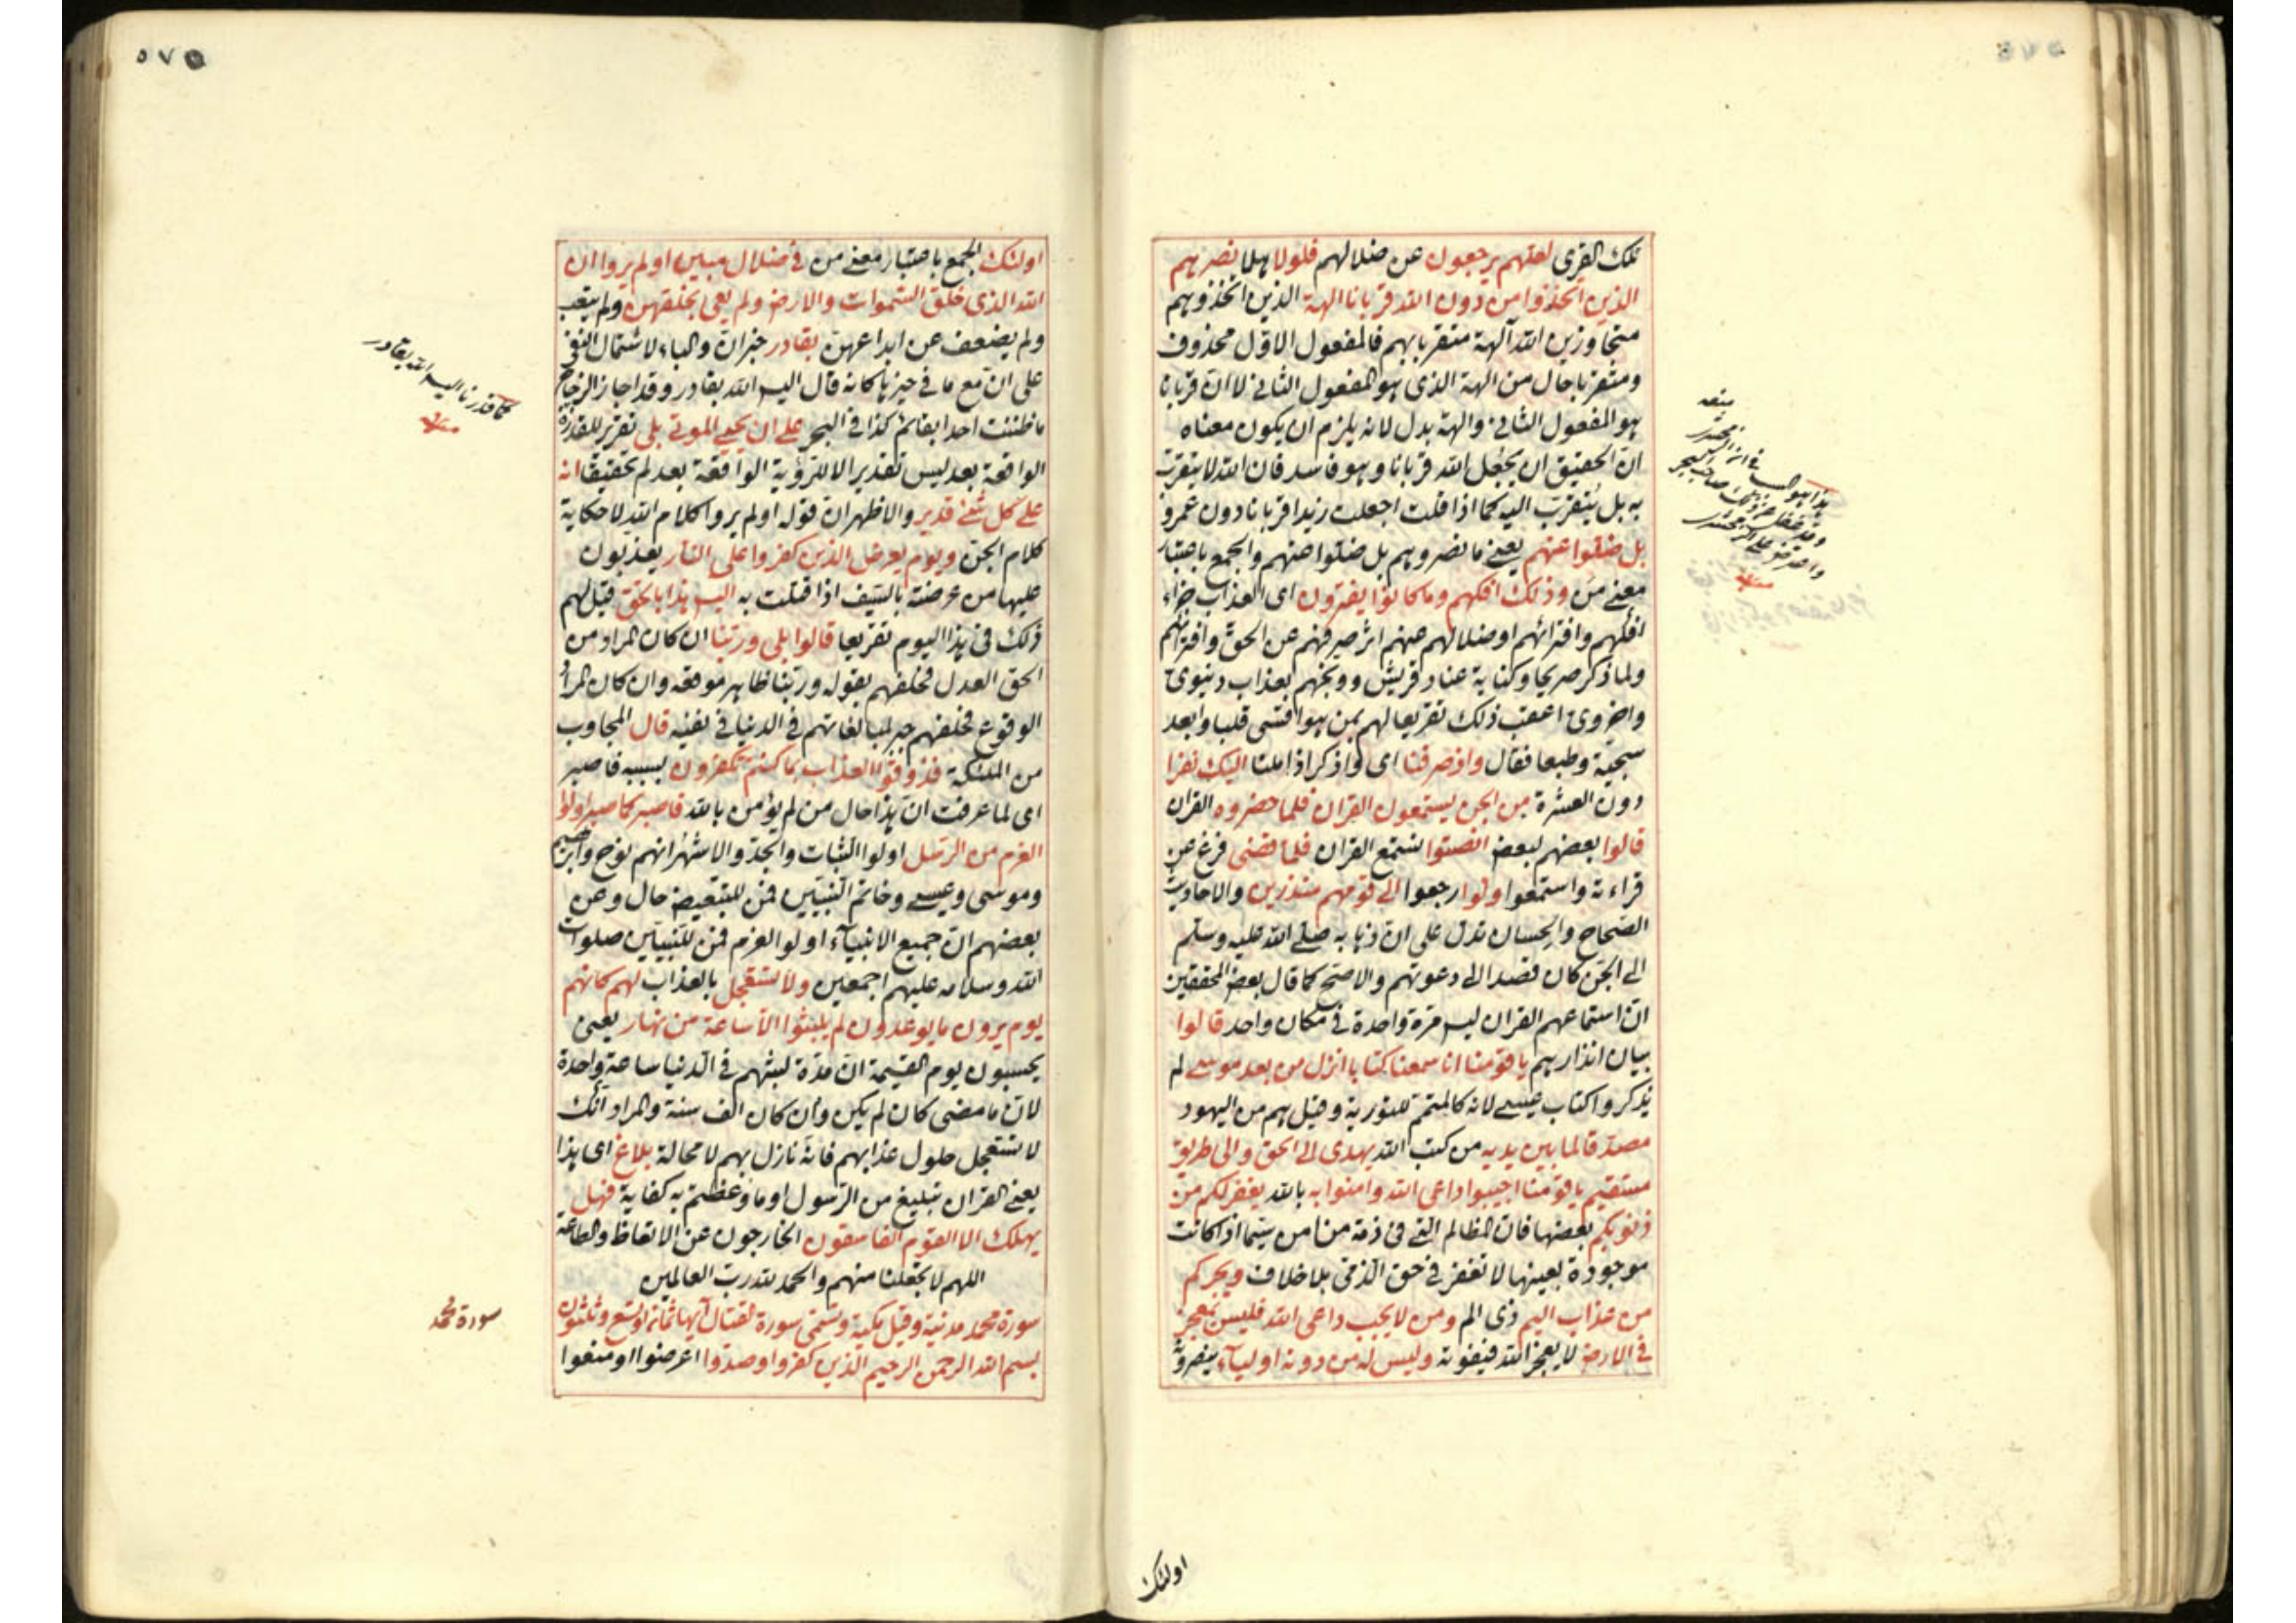 تلك القرى لعلهم يرجعون عن ضلالهم فلولا هلا نصرهم
الذين اتخذوا من دون الله قربانا الهة الذين اتخذوهم
متجاوزين الله آلهة متقربا بهم فالمفعول الاول محذوف
ومتقربا حال من الهة الذى هو المفعول الثانى لا ان قربانا
هو المفعول الثانى والهة بدل لانه يلزم ان يكون معناه
ان الحقيق ان يجعل الله قربانا وهو فاسد فان الله لا يتقرب
به بل يتقرب اليه كما اذا قلت اجعلت زيدا قربانا دون عمرو
بل ضلوا عنهم يعنى ما نصروهم بل ضلوا عنهم والجمع باعتبار
معنى من وذلك افكهم وما كانوا يفترون اى العذاب جزاء
افكهم وافترائهم او ضلالهم عنهم اثر صرفهم عن الحق وافترائهم
ولما ذكر صريحا وكناية عناد قريش ووبخهم بعذاب دنيوى
واخروى اعقب ذلك تقريعا لهم بمن هو اقسى قلبا وابعد
سجية وطبعا فقال واذ صرفنا اى واذكر اذ املنا اليك نفرا
دون العشرة من الجن يستمعون القران فلما حضروه القران
قالوا بعضهم لبعض انصتوا نستمع القران فلما قضى فرغ عن
قراءته واستمعوا ولوا رجعوا الى قومهم منذرين والاحاديث
الصحاح والحسان تدل على ان ذهابه صلى الله عليه وسلم
الى الجن كان قصدا الى دعوتهم والاصح كما قال بعض المحققين
ان استماعهم القران ليس مرة واحدة فى مكان واحد قالوا
بيان انذارهم يا قومنا انا سمعنا كتابا انزل من بعد موسى لم
يذكروا كتاب عيسى لانه كالمتمم للتورية وقيل هم من اليهود
مصدقا لما بين يديه من كتب الله يهدى الى الحق والى طريق
مستقيم يا قومنا اجيبوا داعى الله وامنوا به بالله يغفر لكم من
ذنوبكم بعضها فان المظالم التى فى ذمة من امن سيما اذا كانت
موجودة بعينها لا تغفر فى حق الذمى بلا خلاف ويجركم
من عذاب اليم ذى الم ومن لا يجب داعى الله فليس بمعجز
فى الارض لا يعجز الله فيفوته وليس له من دونه اولياء ينصرونه
اولئك
۵۷۵
اولئك الجمع باعتبار معنى من فى ضلال مبين اولم يروا ان
الله الذى خلق السموات والارض ولم يعى بخلقهن ولم يتعب
ولم يضعف عن ابداعهن بقادر خبر ان والباء لاشتمال النفى
على ان مع ما فى حيزها كانه قال اليس الله بقادر وقد اجاز الزجاج
ما ظننت احدا بقائم كذا فى البحر على ان يحيى الموتى بلى تقرير للقدرة
الواقعة بعد ليس تقدير الا للرؤية الواقعة بعد لم تحقيقا انه
على كل شئ قدير والاظهر ان قوله اولم يروا كلام الله لا حكاية
كلام الجن ويوم يعرض الذين كفروا على النار يعذبون
عليها من عرضته بالسيف اذا قتلت به اليس هذا بالحق قيل لهم
ذلك فى هذا اليوم تقريعا قالوا بلى وربنا ان كان المراد من
الحق العدل فحلفهم بقوله وربنا ظاهر موقعه وان كان المراد
الوقوع فحلفهم جبر لمبالغاتهم فى الدنيا فى نفيه قال المجاوب
من الملئكة فذوقوا العذاب بما كنتم تكفرون بسببه فاصبر
اى لما عرفت ان هذا حال من لم يؤمن بالله فاصبر كما صبر اولوا
العزم من الرسل اولوا الثبات والجد والاشهر انهم نوح وابرهيم
وموسى وعيسى وخاتم النبيين فمن للتبعيض حال وعن
بعضهم ان جميع الانبياء اولو العزم فمن للتبيين صلوات
الله وسلامه عليهم اجمعين ولا تستعجل بالعذاب لهم كانهم
يوم يرون ما يوعدون لم يلبثوا الا ساعة من نهار يعنى
يحسبون يوم القيمة ان مدة لبثهم فى الدنيا ساعة واحدة
لان ما مضى كان لم يكن وان كان الف سنة والمراد انك
لا تستعجل حلول عذابهم فانه نازل بهم لا محالة بلاغ اى هذا
يعنى القران تبليغ من الرسول او ما وعظتم به كفاية فهل
يهلك الا القوم الفاسقون الخارجون عن الاتعاظ والطاعة
اللهم لا تجعلنا منهم والحمد لله رب العالمين
سورة محمد مدنية وقيل مكية وتسمى سورة القتال آيها ثمان او تسع وثلثون
بسم الله الرحمن الرحيم الذين كفروا وصدوا اعرضوا او منعوا
كما قدرنا اليس الله بقادر
سورة محمد